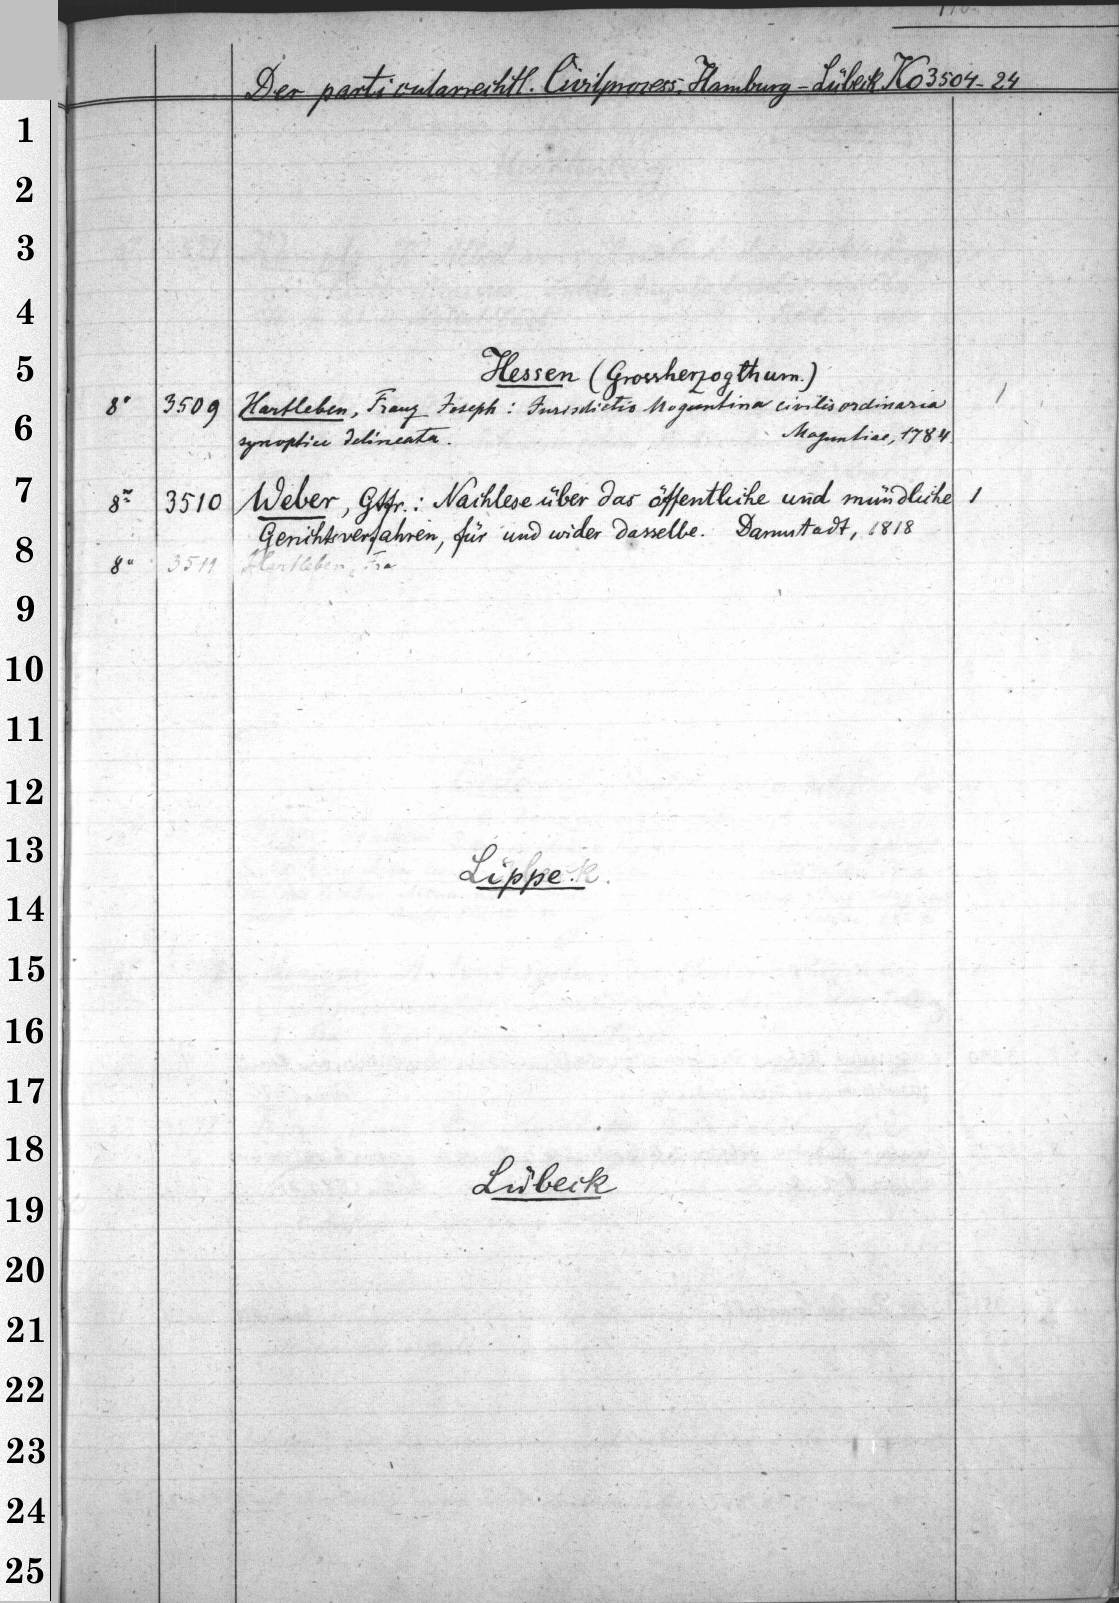 Der particularrechtl. Civilprozess. Hamburg - Lübeck. Ko 3504-24
1
2
3
4
5
Hessen (Grossherzogthum.)
8° 3509 Hartleben, Franz Joseph: Jurisdictio Moguntina civilis ordinaria 1
6
synoptice delineata. Moguntiae, 1784.
7
8° 3510 Weber, Gttfr.: Nachlese über das öffentliche und mündliche 1
Gerichtsverfahren, für und wider dasselbe. Darmstadt, 1818
8
8° 3511 Hartleben, Fra
9
10
11
12
13
Lippe.
14
15
16
17
18
Lübeck
19
20
21
22
23
24
25